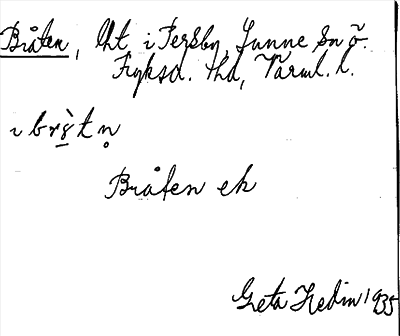 Bråten, lht i Persby, Sunne sn ö.
Fryksd. hd, Värml. l.
i brèt n̥
Bråten ek
Greta Hedin 1935